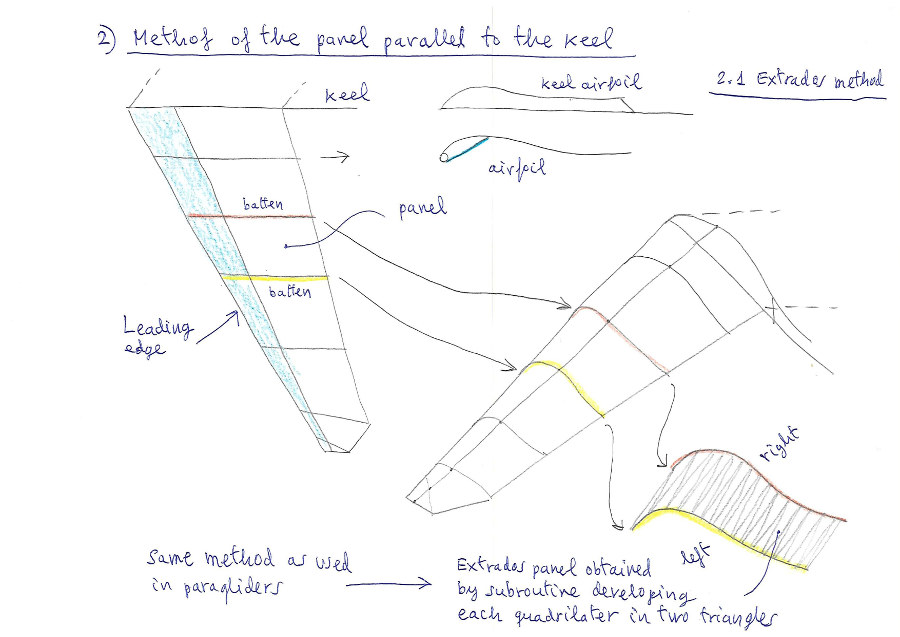 2) Methof of the panel parallel to the keel
2.1 Extrados method
keel
keel airfoil
airfoil
batten
panel
batten
Leading
edge
right
left
Same method as used
in paragliders
Extrados panel obtained
by subroutine developing
each quadrilater in two triangles